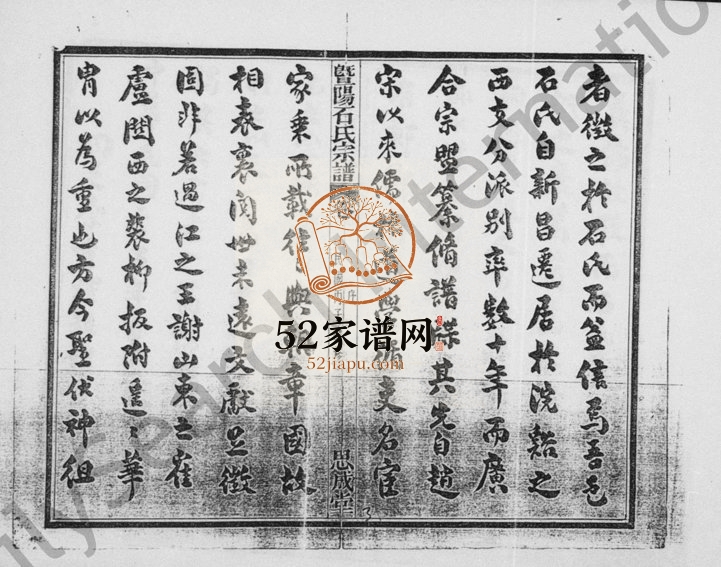 者徵之於石氏而益信焉吾邑
石氏自新昌遷居於浣谿之
西支分派別率數十年而廣
合宗盟纂脩譜牒其先自趙
宋以來儒 吏名宦
暨陽石氏宗譜
思成堂
家乘所載往往與 章國故
相表裏閱世未遠文獻足徵
固非若過江之王謝山東之崔
盧關西之裴柳扳附遥遥華
胄以為重也方今聖伏神徂
52家谱网
52jiapu.com